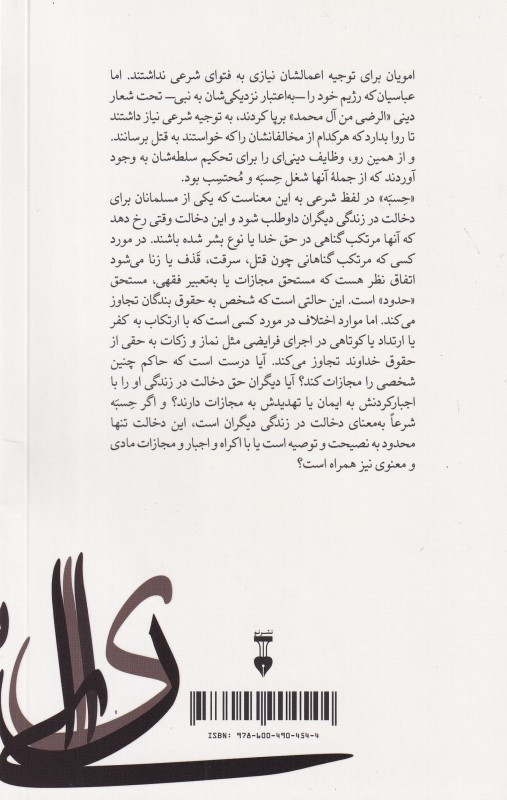 امویان برای توجیه اعمالشان نیازی به فتوای شرعی نداشتند. اما
عباسیان که رژیم خود را —به‌اعتبار نزدیکی‌شان به نبی— تحت شعار
دینی «الرضی من آل محمد» برپا کردند، به توجیه شرعی نیاز داشتند
تا روا بدارد که هرکدام از مخالفانشان را که خواستند به قتل برسانند.
و از همین رو، وظایف دینی‌ای را برای تحکیم سلطه‌شان به وجود
آوردند که از جملهٔ آنها شغل حِسبَه و مُحتسِب بود.
«حِسبَه» در لفظ شرعی به این معناست که یکی از مسلمانان برای
دخالت در زندگی دیگران داوطلب شود و این دخالت وقتی رخ دهد
که آنها مرتکب گناهی در حق خدا یا نوع بشر شده باشند. در مورد
کسی که مرتکب گناهانی چون قتل، سرقت، قَذف یا زنا می‌شود
اتفاق نظر هست که مستحق مجازات یا به‌تعبیر فقهی، مستحق
«حدود» است. این حالتی است که شخص به حقوق بندگان تجاوز
می‌کند. اما موارد اختلاف در مورد کسی است که با ارتکاب به کفر
یا ارتداد یا کوتاهی در اجرای فرایضی مثل نماز و زکات به حقی از
حقوق خداوند تجاوز می‌کند. آیا درست است که حاکم چنین
شخصی را مجازات کند؟ آیا دیگران حق دخالت در زندگی او را با
اجبارکردنش به ایمان یا تهدیدش به مجازات دارند؟ و اگر حِسبَه
شرعاً به‌معنای دخالت در زندگی دیگران است، این دخالت تنها
محدود به نصیحت و توصیه است یا با اکراه و اجبار و مجازات مادی
و معنوی نیز همراه است؟
نشر نو
ISBN: ۹۷۸-۶۰۰-۴۹۰-۴۵۴-۴